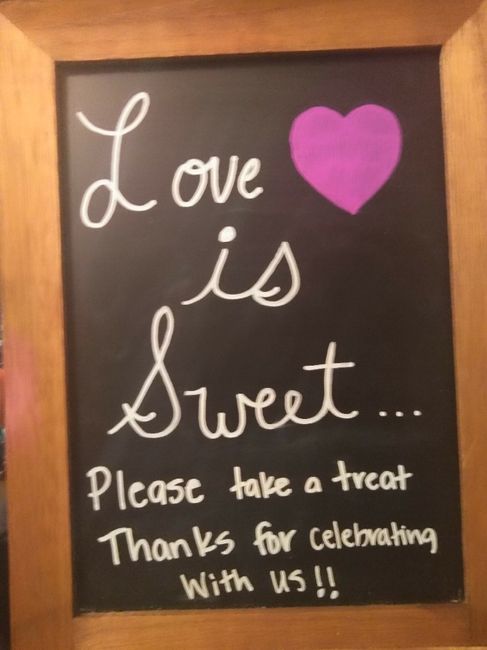 Love
is
Sweet...
Please take a treat
Thanks for celebrating
With us!!